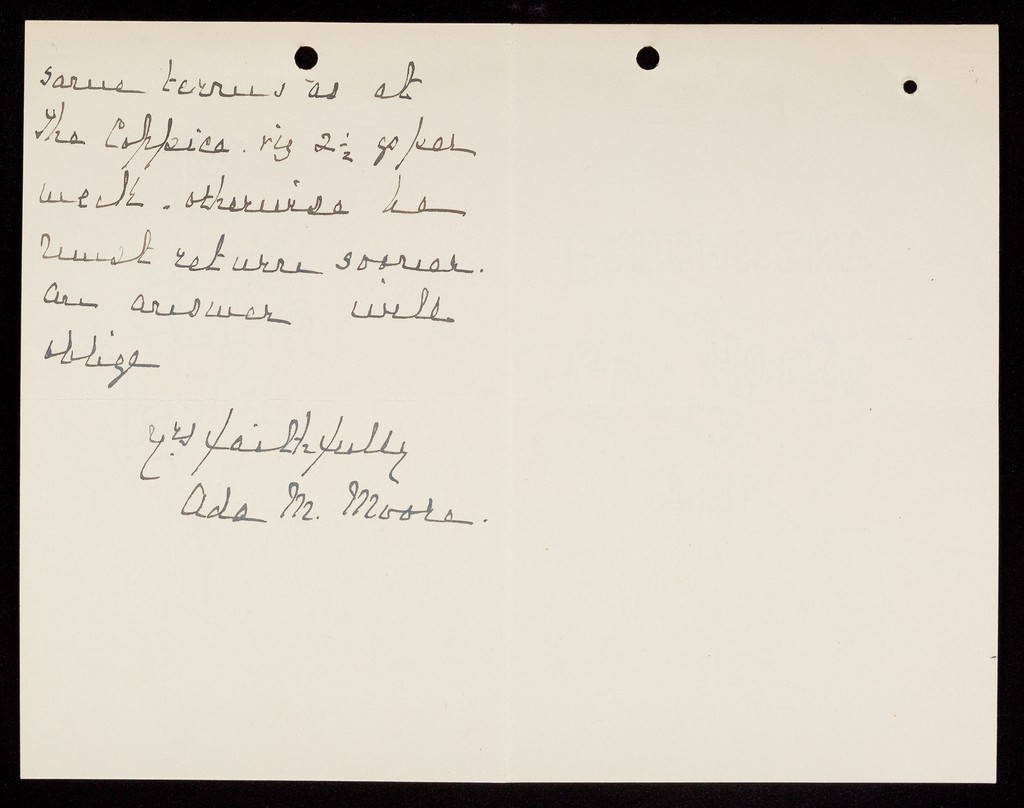 same terms as at
The Coppice. viz 2½ gs per
week. otherwise he
must return sooner.
An answer will
oblige
Yrs faithfully
Ada M. Moore.